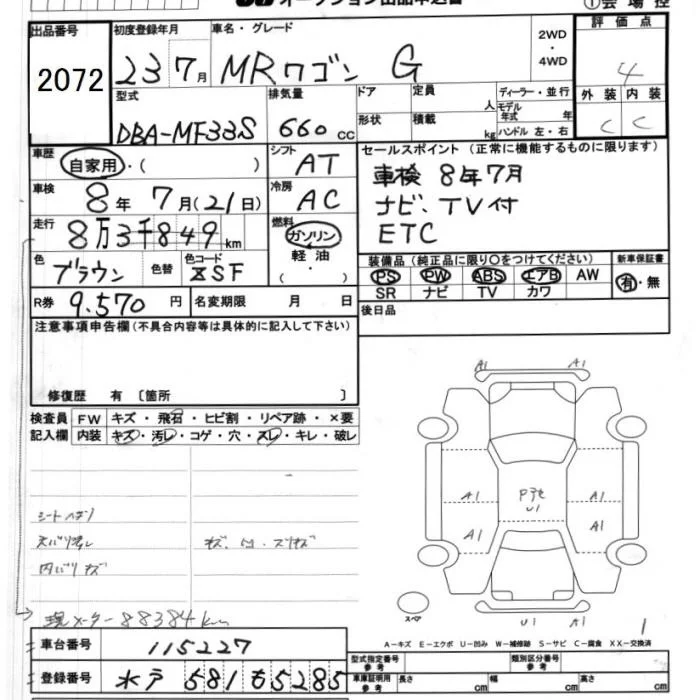 オークション出品申込書
①会場控
出品番号 初度登録年月 車名・グレード 2WD・4WD 評価点
2072 23 7月 MRワゴン G 4
型式 排気量 ドア 定員 人 ディーラー・並行 外装 内装
DBA-MF33S 660 cc 形状 積載 kg モデル年式 年 ハンドル 左・右 C C
車歴 自家用・( ) シフト AT セールスポイント(正常に機能するものに限ります)
車検 8年 7月(21日) 冷房 AC 車検 8年7月
走行 8万3千849km 燃料 ガソリン・軽油・( ) ナビ、TV付
ETC
色 ブラウン 色替 色コード ZSF 装備品(純正品に限り○をつけてください) 新車保証書
PS PW ABS エアB AW 有・無
SR ナビ TV カワ
R券 9,570円 名変期限 月 日 後日品
注意事項申告欄(不具合内容等は具体的に記入して下さい)
修復歴 有〔箇所 〕
検査員 FW キズ・飛石・ヒビ割・リペア跡・×要
記入欄 内装 キズ・汚レ・コゲ・穴・スレ・キレ・破レ
A1 A1
A1 A1
A1 A1
U1
U1 A1
1
スペア
現メーター88384km
A－キズ E－エクボ U－凹み W－補修跡 S－サビ C－腐食 XX－交換済
車台番号 115227 型式指定番号 参考 類別区分番号 参考
登録番号 水戸 581 も 5285 車庫証明用 参考 長さ cm 幅 cm 高さ cm